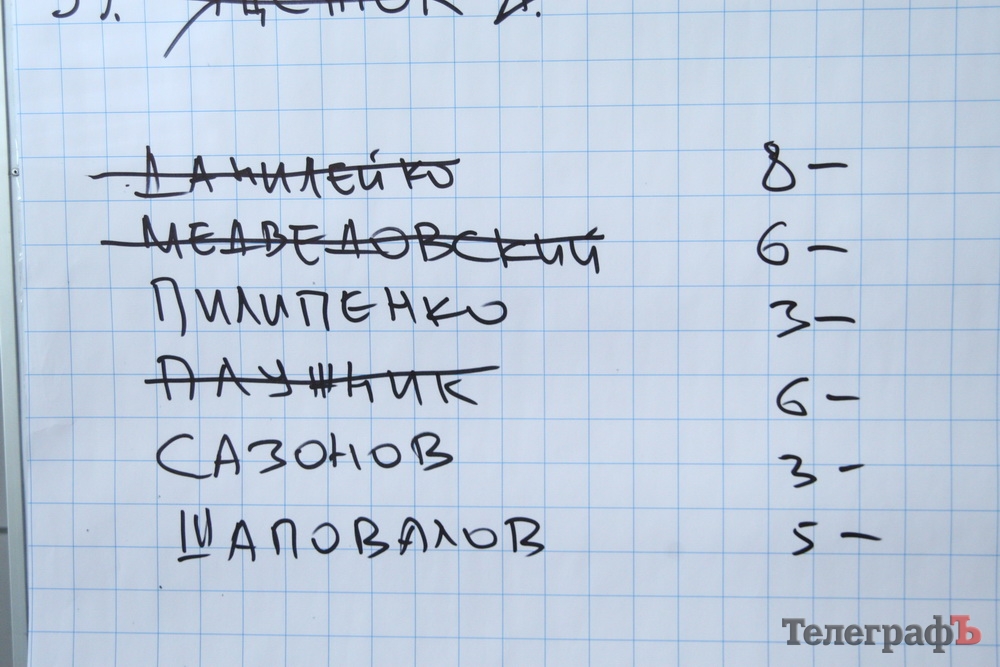 ДАНИЛЕЙКО 8 –
МЕДВЕДОВСКИЙ 6 –
ПИЛИПЕНКО 3 –
ПЛУЖНИК 6 –
САЗОНОВ 3 –
ШАПОВАЛОВ 5 –
ТелеграфЪ